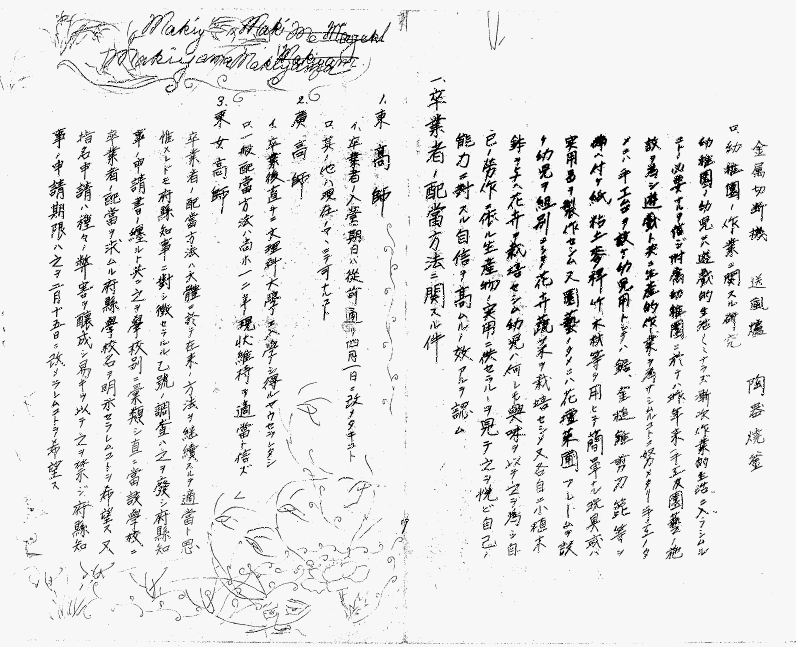 金属切断機 送風爐 陶器焼釜
ロ、幼稚園ノ作業ニ関スル研究
幼稚園ノ幼児ハ遊戯的生活ノミナラズ漸次作業的生活ニ入ラシムル
コトノ必要ナルヲ信ジ附属幼稚園ニ於テハ昨年来手工及園藝ノ施
設ヲ為シ遊戯ト共ニ生産的作業ヲ為サシムルコトニ努メタリ手工ノタ
メニハ手工台ヲ設ケ幼児用トシテハ鋸、金槌、鉋、剪刀、箆等ヲ
備ヘ付ケ紙粘土各種竹木板等ヲ用ヒテ簡単ナル玩具或ハ
実用品ヲ製作セシム又園藝ノタメニハ花壇菜圃フレームヲ設
ケ幼児ヲ組別ニシテ花卉蔬菜ヲ栽培セシメ又各自ニ小植木
鉢ヲ与ヘ花卉ヲ栽培セシム幼児ハ何レモ興味ヲ以テ之ヲ為シ自
己ノ勞作ニ依ル生産物ノ実用ニ供セラルヽヲ見テ之ヲ悦ビ自己ノ
能力ニ対スル自信ヲ高ムルノ效アルヲ認ム
一、卒業者ノ配當方法ニ関スル件
1. 東高師
イ、卒業者ノ入営期日ハ従前通リ四月一日ニ改メタキコト
ロ、其ノ他ハ現在ノマヽニテ可ナルコト
2. 廣高師
イ、卒業後直チニ文理科大學ニ入學シ得ルヤウセラレタシ
ロ、一般配當方法ハ尚ホ一二年現状維持ヲ適當ト信ズ
3. 東女高師
卒業者ノ配當方法ハ大體ニ於テ在来ノ方法ヲ継續スルヲ適當ト思
惟スレドモ府縣知事ニ対シ徴セラルル乙號ノ調査ハ之ヲ發シ府縣知
事ノ申請書ノ纏ルト共ニ之ヲ學校別ニ類シ直ニ當該學校ニ
卒業者ノ配當ヲ求ムル府縣學校名ヲ明示セラレムコトヲ希望ス又
指名申請ハ種々ノ弊害ヲ醸成シ易キヲ以テ之ヲ禁ジ府縣知
事ノ申請期限ハ之ヲ二月十五日ニ改メラレムコトヲ希望ス